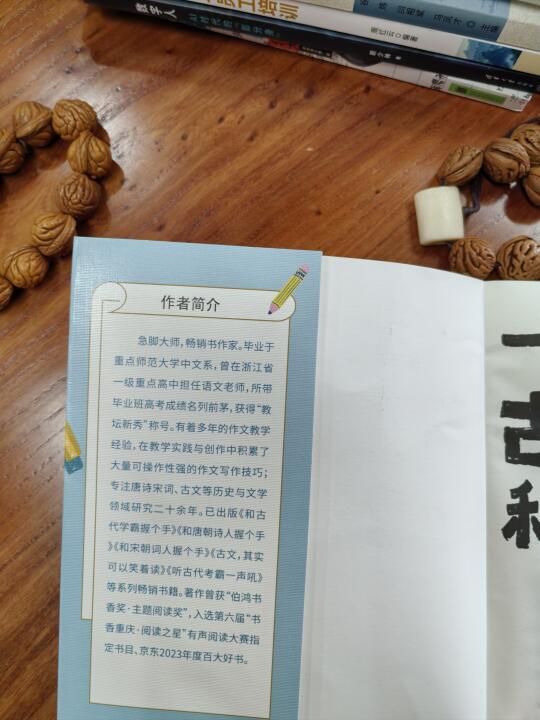 职工培训
主编
数字人
编著
作者简介
急脚大师，畅销书作家。毕业于
重点师范大学中文系，曾在浙江省
一级重点高中担任语文老师，所带
毕业班高考成绩名列前茅，获得“教
坛新秀”称号。有着多年的作文教学
经验，在教学实践与创作中积累了
大量可操作性强的作文写作技巧；
专注唐诗宋词、古文等历史与文学
领域研究二十余年。已出版《和古
代学霸握个手》《和唐朝诗人握个手
》《和宋朝词人握个手》《古文，其实
可以笑着读》《听古代考霸一声吼》
等系列畅销书籍。著作曾获“伯鸿书
香奖·主题阅读奖”，入选第六届“书
香重庆·阅读之星”有声阅读大赛指
定书目、京东2023年度百大好书。
古